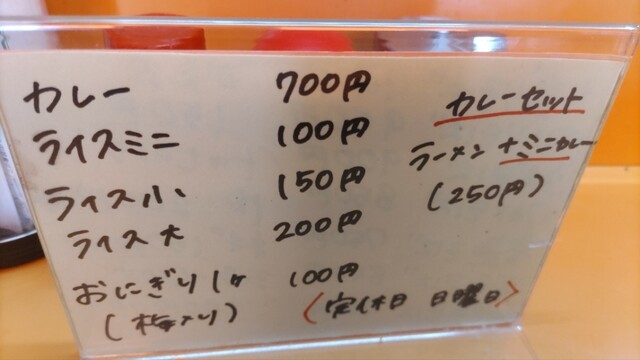 カレー 700円
ライスミニ 100円
ライス小 150円
ライス大 200円
おにぎり1ヶ 100円
(梅入り)
カレーセット
ラーメン +ミニカレー
(250円)
〈定休日 日曜日〉